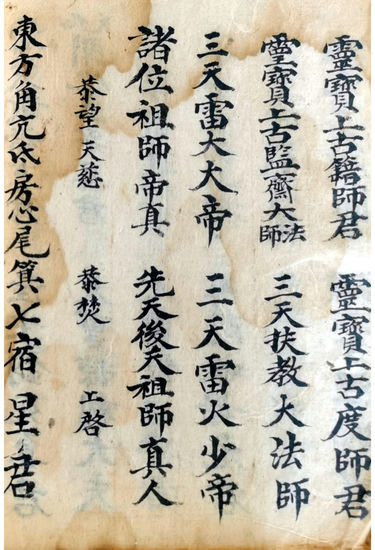 靈寶上古籍師君 靈寶上古度師君
靈寶上古監齋大法師 三天扶教大法師
三天雷大大帝 三天雷火少帝
諸位祖師帝真 先天後天祖師真人
恭望天慈 恭焚 上啓
東方角亢氐房心尾箕七宿 星君